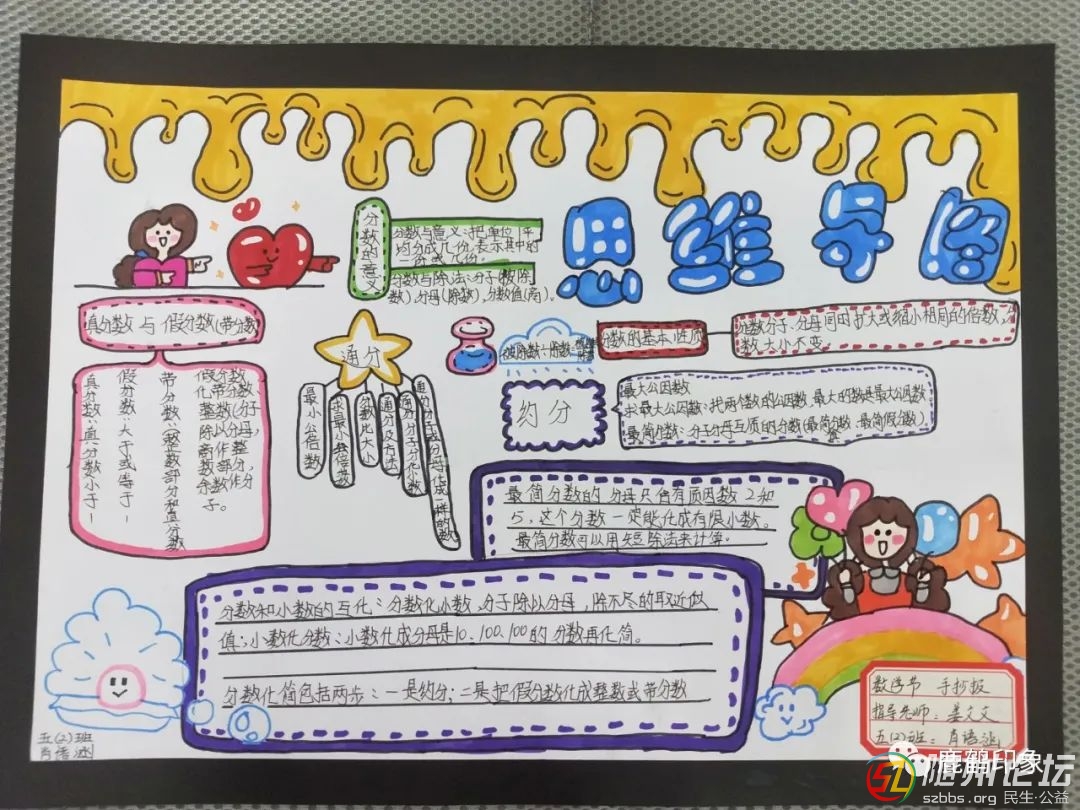 思维导图
分数的意义
分数与意义:把单位1平
均分成几份,表示其中的
一份或几份。
分数与除法:分子(被除
数),分母(除数),分数值(商)。
真分数 与 假分数(带分数)
真分数:真分数小于1
假分数:大于或等于1
带分数:整数部分和真分数
假分数
化带分数、
整数(分子
除以分母,
商作整
数部分,
余数作分
子。
通分
最小公倍数
求最小公倍数
分数比大小
通分及方法
分数的基本性质
分数分子、分母同时扩大或缩小相同的倍数,分
数大小不变。
约分
最大公因数
求最大公因数:找两个数的公因数,最大的数是最大公因数
最简分数:分子分母互质的分数(最简真分数、最简假分数)
最简分数的分母只含有质因数2和
5,这个分数一定能化成有限小数。
最简分数可以用短除法来计算。
分数和小数的互化:分数化小数,分子除以分母,除不尽的取近似
值;小数化分数:小数化成分母是10、100、100的分数再化简。
分数化简包括两步:一是约分;二是把假分数化成整数或带分数
数学节 手抄报
指导老师:姜文文
五(2)班:肖语涵
五(2)班
肖语涵
鹿鹤印象
随州论坛
szbbs.org 民生·公益